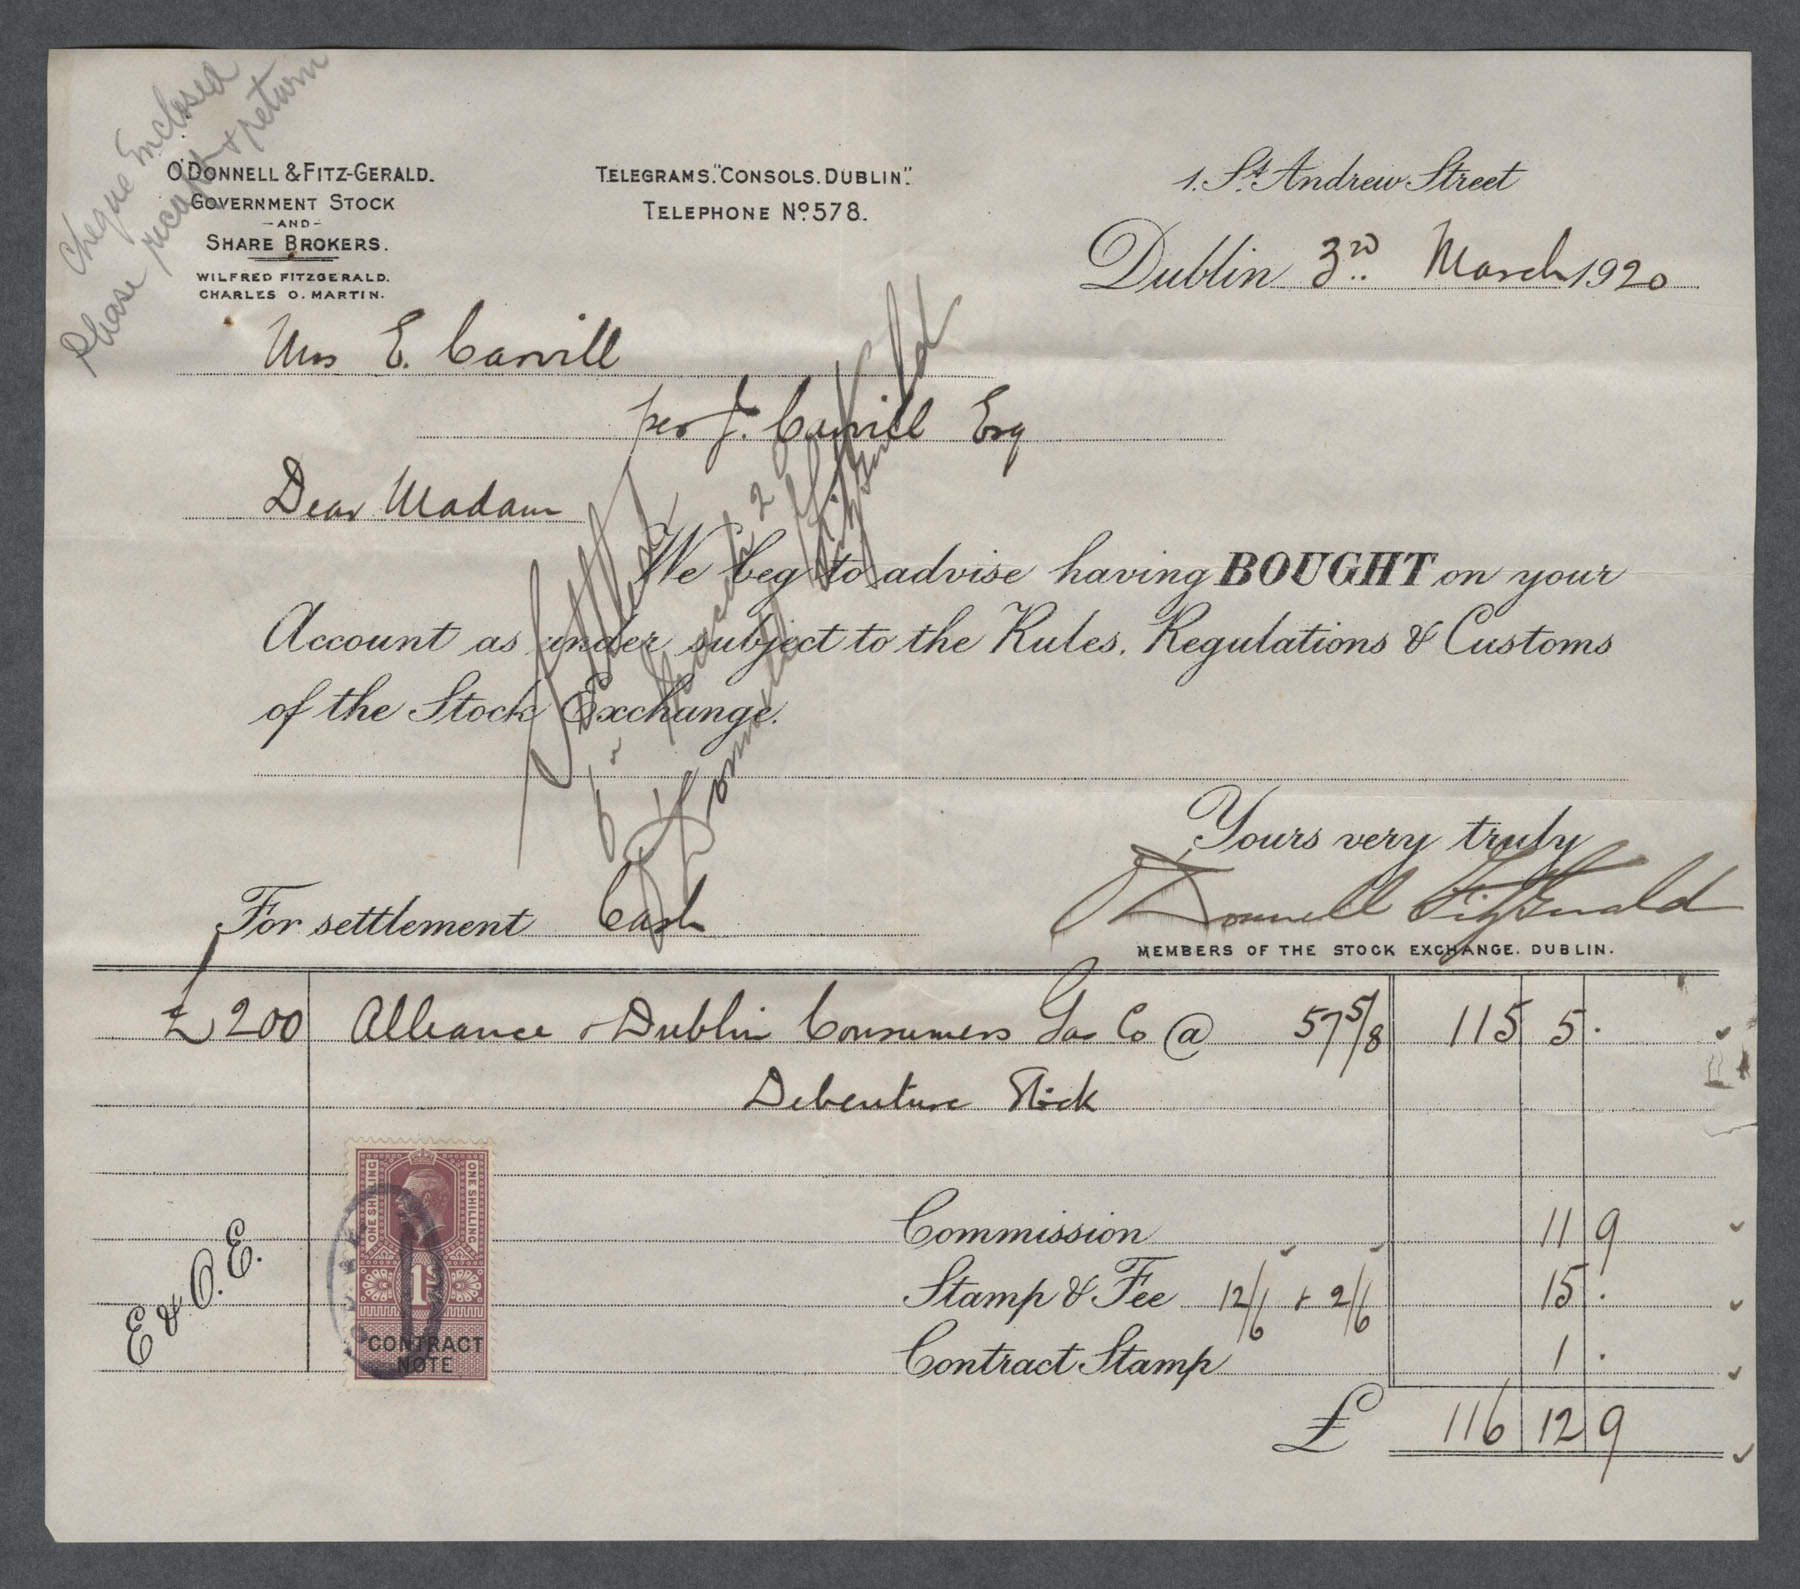 Cheque Enclosed
Please receipt & return
O'DONNELL & FITZ-GERALD.
GOVERNMENT STOCK
-AND-
SHARE BROKERS.
WILFRED FITZGERALD.
CHARLES O. MARTIN.
TELEGRAMS. "CONSOLS. DUBLIN".
TELEPHONE Nº 578.
1. St. Andrew Street
Dublin 3rd March 1920
Mrs E. Carvill
per J. Carvill Esq
Dear Madam
We beg to advise having BOUGHT on your
Account as under subject to the Rules, Regulations & Customs
of the Stock Exchange.
Settled
6 March 20
O'Donnell Fitzgerald
Yours very truly
O'Donnell Fitzgerald
MEMBERS OF THE STOCK EXCHANGE. DUBLIN.
For settlement Cash
£200 Alliance & Dublin Consumers Gas Co @ 57 5/8 115 5 .
Debenture Stock
ONE SHILLING
ONE SHILLING
1S
CONTRACT
NOTE
E & O. E.
Commission 11 9
Stamp & Fee 12/6 + 2/6 15 .
Contract Stamp 1 .
£ 116 12 9